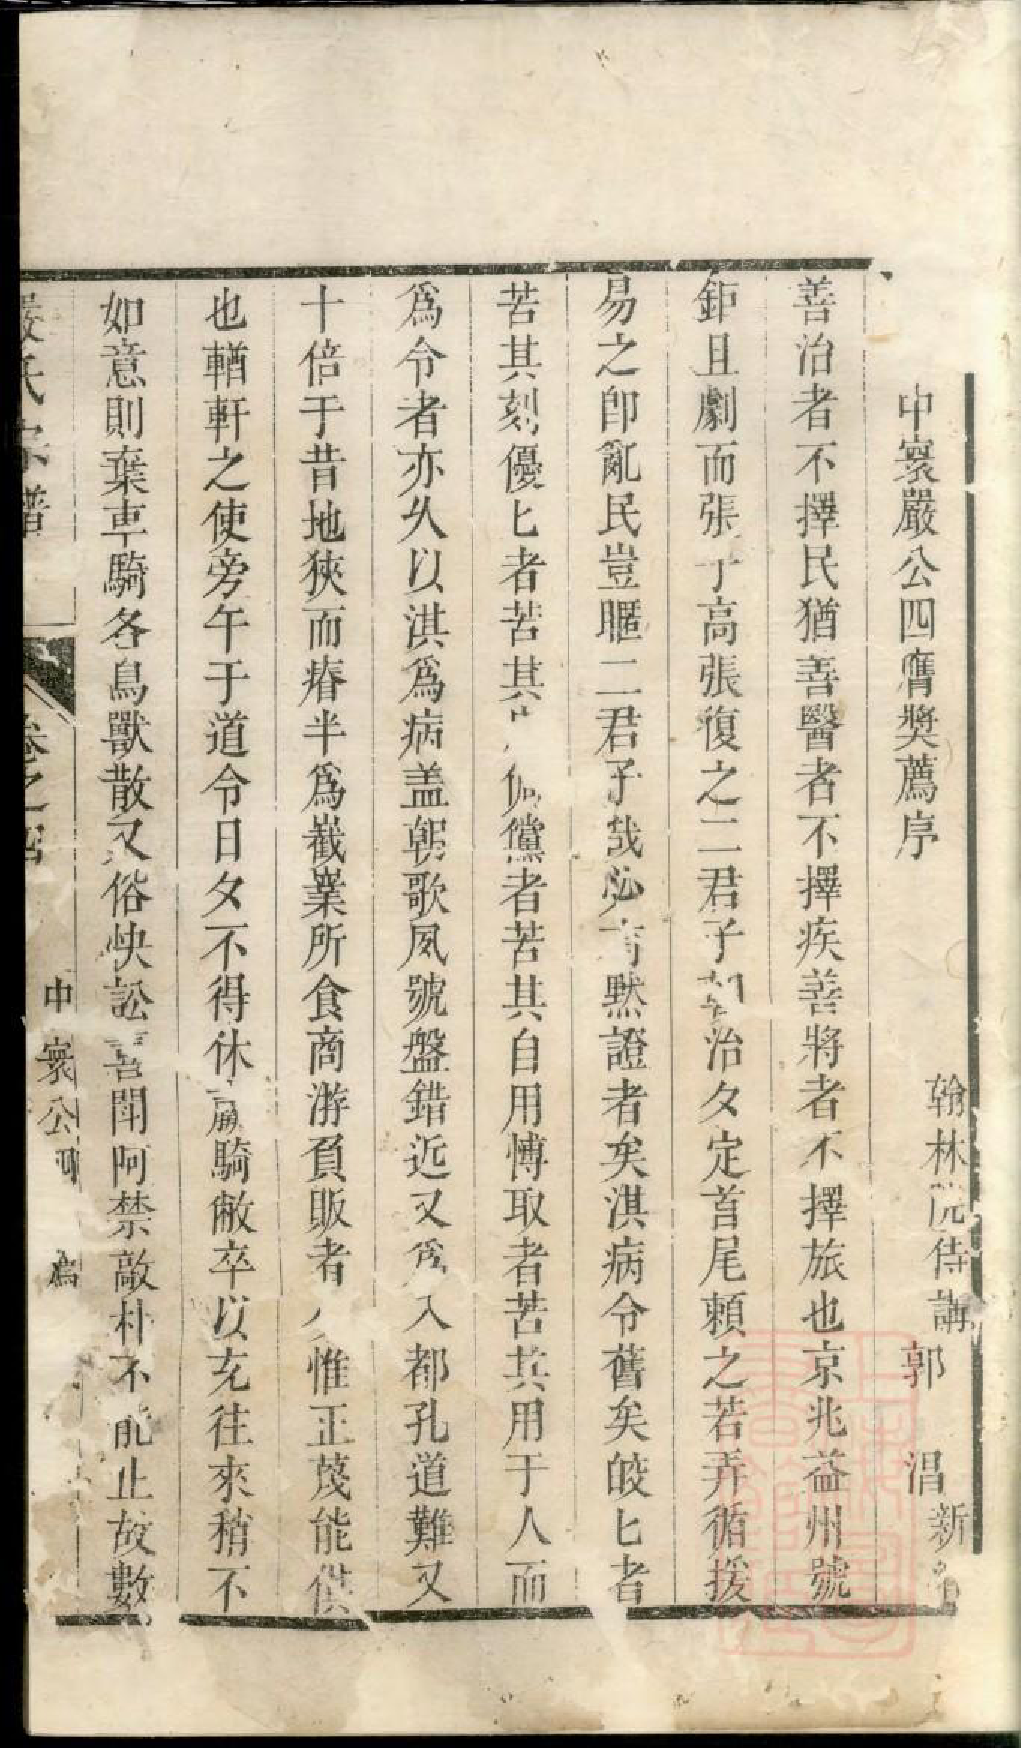 中寰嚴公四膺獎薦序
翰林院侍講郭 淐新
善治者不擇民猶善醫者不擇疾善將者不擇旅也京兆益州號
鉅且劇而張子高張復之二君子治夂定首尾頼之若弄循援
易之卽亂民豈暱二君子哉必有默證者矣淇病令舊矣皎匕者
苦其刻優匕者苦其儻者苦其自用慱取者苦其用于人而
爲令者亦乆以淇爲病盖朝歌夙號盤錯近又爲入都孔道難又
十倍于昔地狹而瘠半爲嶻嶪所食商游負販者惟正茂能供
也輶軒之使旁午于道令日夂不得休羸騎敝卒以充往來稍不
如意則棄車騎各鳥獸散又俗怏訟喜閗呵禁敲朴不能止故數
嚴氏宗譜
卷之四
中寰公 薦